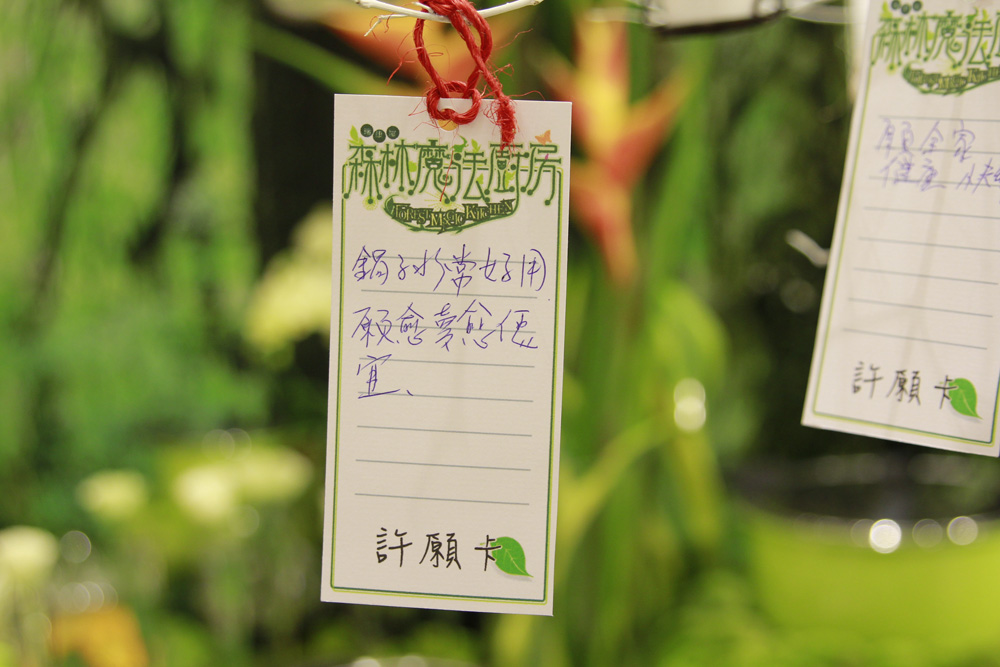 養生鍋
森林魔法廚房
FOREST MAGIC KITCHEN
鍋子非常好用
願愈賣愈便
宜、
許願卡
森林魔法
願全家
健康
許願卡